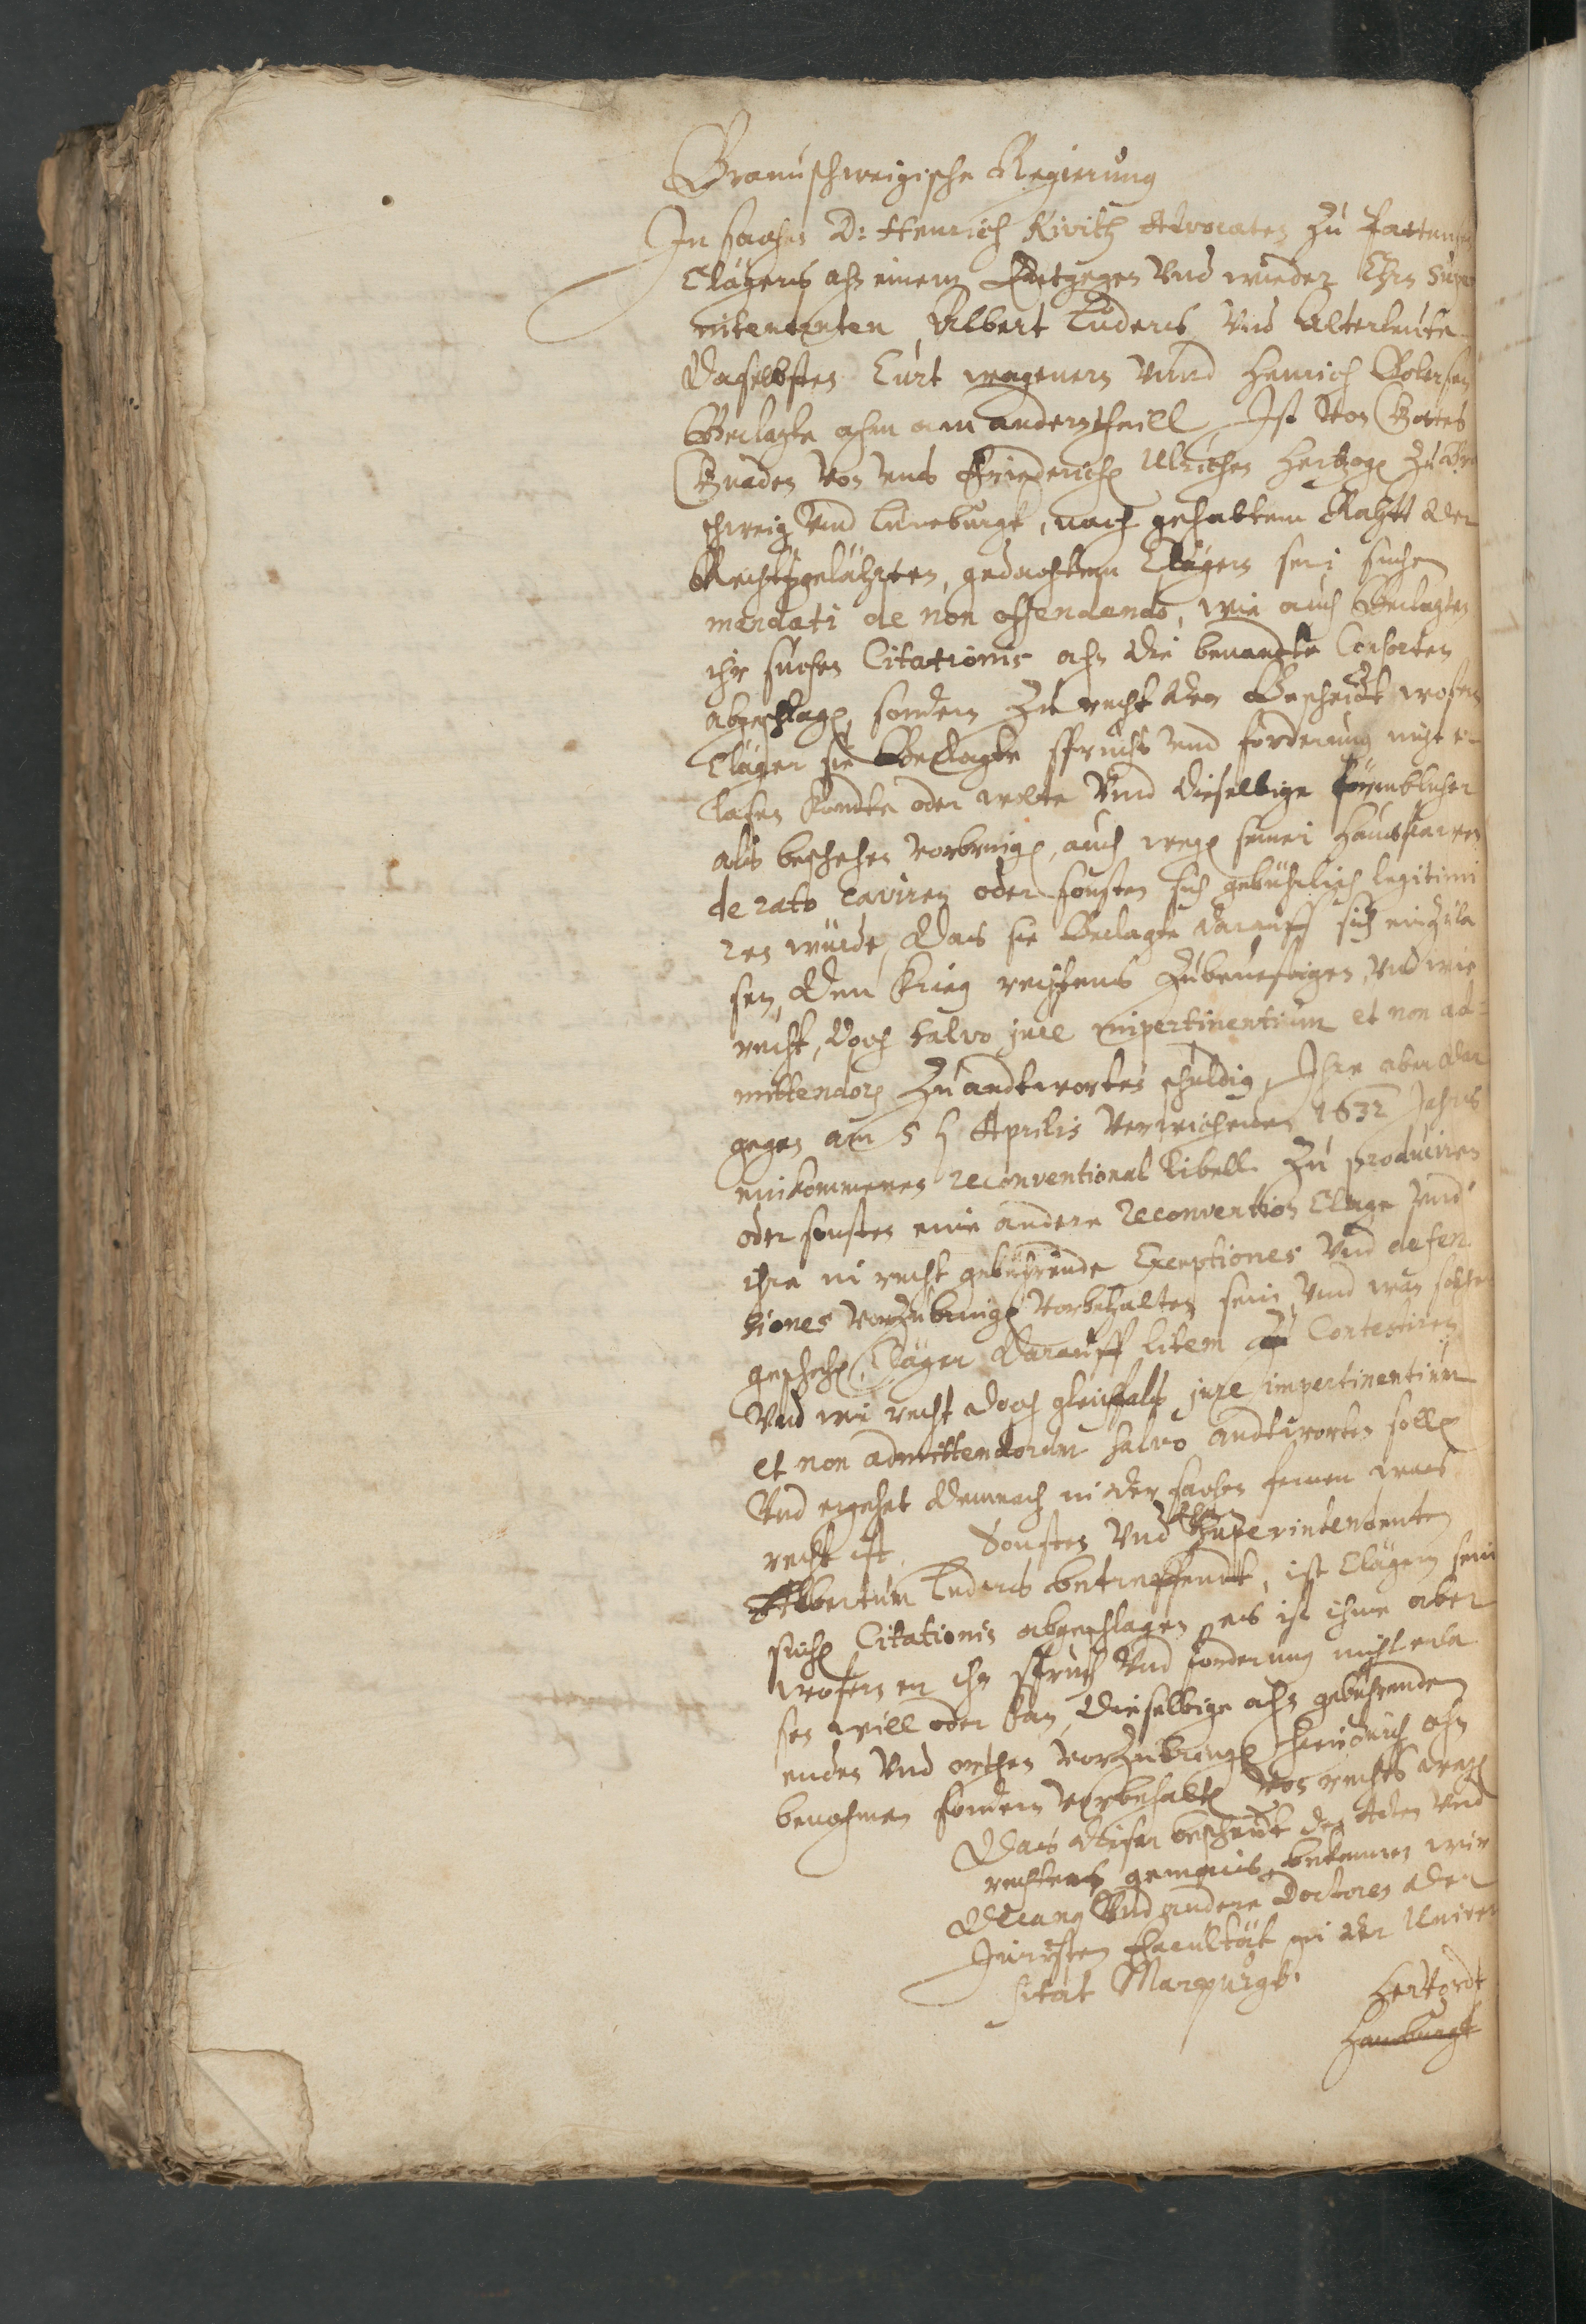 Braunschweigische Regierung
In sachen D: Henrich Kivitz Advocaten zu Patten
Clägers ahn einem Entgegen Vnd wieder Ehrn Supe
rintendenten, Albert Lüders Vnd Alterleute
daselbsten Curt wageners Vnnd Henrich
Beclagte ahm am anderntheill, Ist Von Gottes
Gnaden Von Vns Friederich Ulrichen Hertzog zu Br
schweig Vnd Lüneburgk, nach gehabtem Rahtt der
Rechtsgelährten, gedachtem Clägern sein suchen
mandati de non offendendo, wie auch Beclagten
ihr suchen Citationis ahn die benandte Consorten
abgeschlagen, sondern zu recht der Bescheidt wofern
Cläger sie Beclagte spruchs vnd forderung nicht er
lassen kondte oder wolte Vnd dieselbige förmblicher
als beschehen vorbringen, auch wegen seiner Hausfrawen
de rato caviren oder sonsten sich gebührlich legitimi
ren würde, das sie Beclagte darauff sich einzula
sen, den Krieg rechtens zubevestigen, Vnd wie
recht, doch salvo jure impertinentium et non ad-
mittendorum zu andtworten schuldig, Ihre aber dar
gegen am 5 Aprilis Verwichenen 1632 Jahrs
einkommenes reconventional libell zu produciren
oder sonsten eine andere Reconvention Clage Vnd
ihre in recht gebührende Exceptiones Vnd defen
siones vorzubringen vorbehalten sein, Vnd wan solches
geschehen, Cläger darauff litem zu Contestiren
Vnd wie recht doch gleichfals jure impertinentium
et non admittendorum salvo andtworten solle
Vnd ergehet demnach in der sachen ferner was
recht ist. Sonsten Vnd Superintendenten
Albertum Luders betreffendt, ist Clägern sein
suchen Citationis abgeschlagen, es ist ihme aber
wofern er ihn spruch Vnd forderung nicht erla
sen will oder kan, dieselbige ahn gebührenden
enden Vnd orthen vorzubringen hierdurch ohn
benohmen sondern vorbehalten Von rechts wegen
Das dieser bescheidt den Acten Vnd
rechtens gemeess, bekennen wir
Decang Vnd andere Doctores der
Juristen Facultät in der Univer
sitat Marpurgk.
Hervordt
Hamburgk